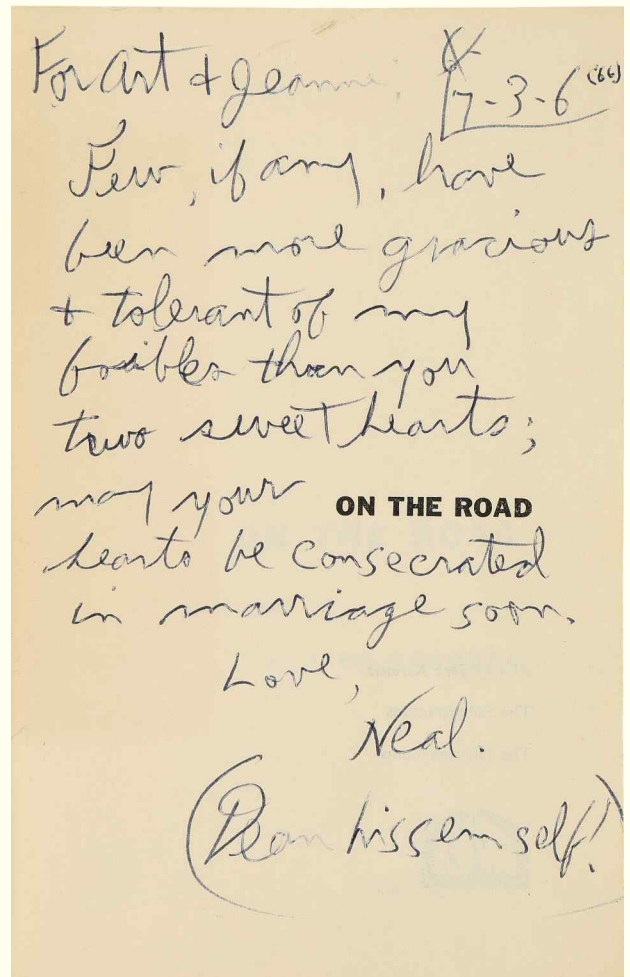 For Art & Jeanne, 7-3-6 ('66)
Few, if any, have
been more gracious
& tolerant of my
foibles than you
two sweethearts;
may your
ON THE ROAD
hearts be consecrated
in marriage soon.
Love,
Neal.
(Dean hissemself!)